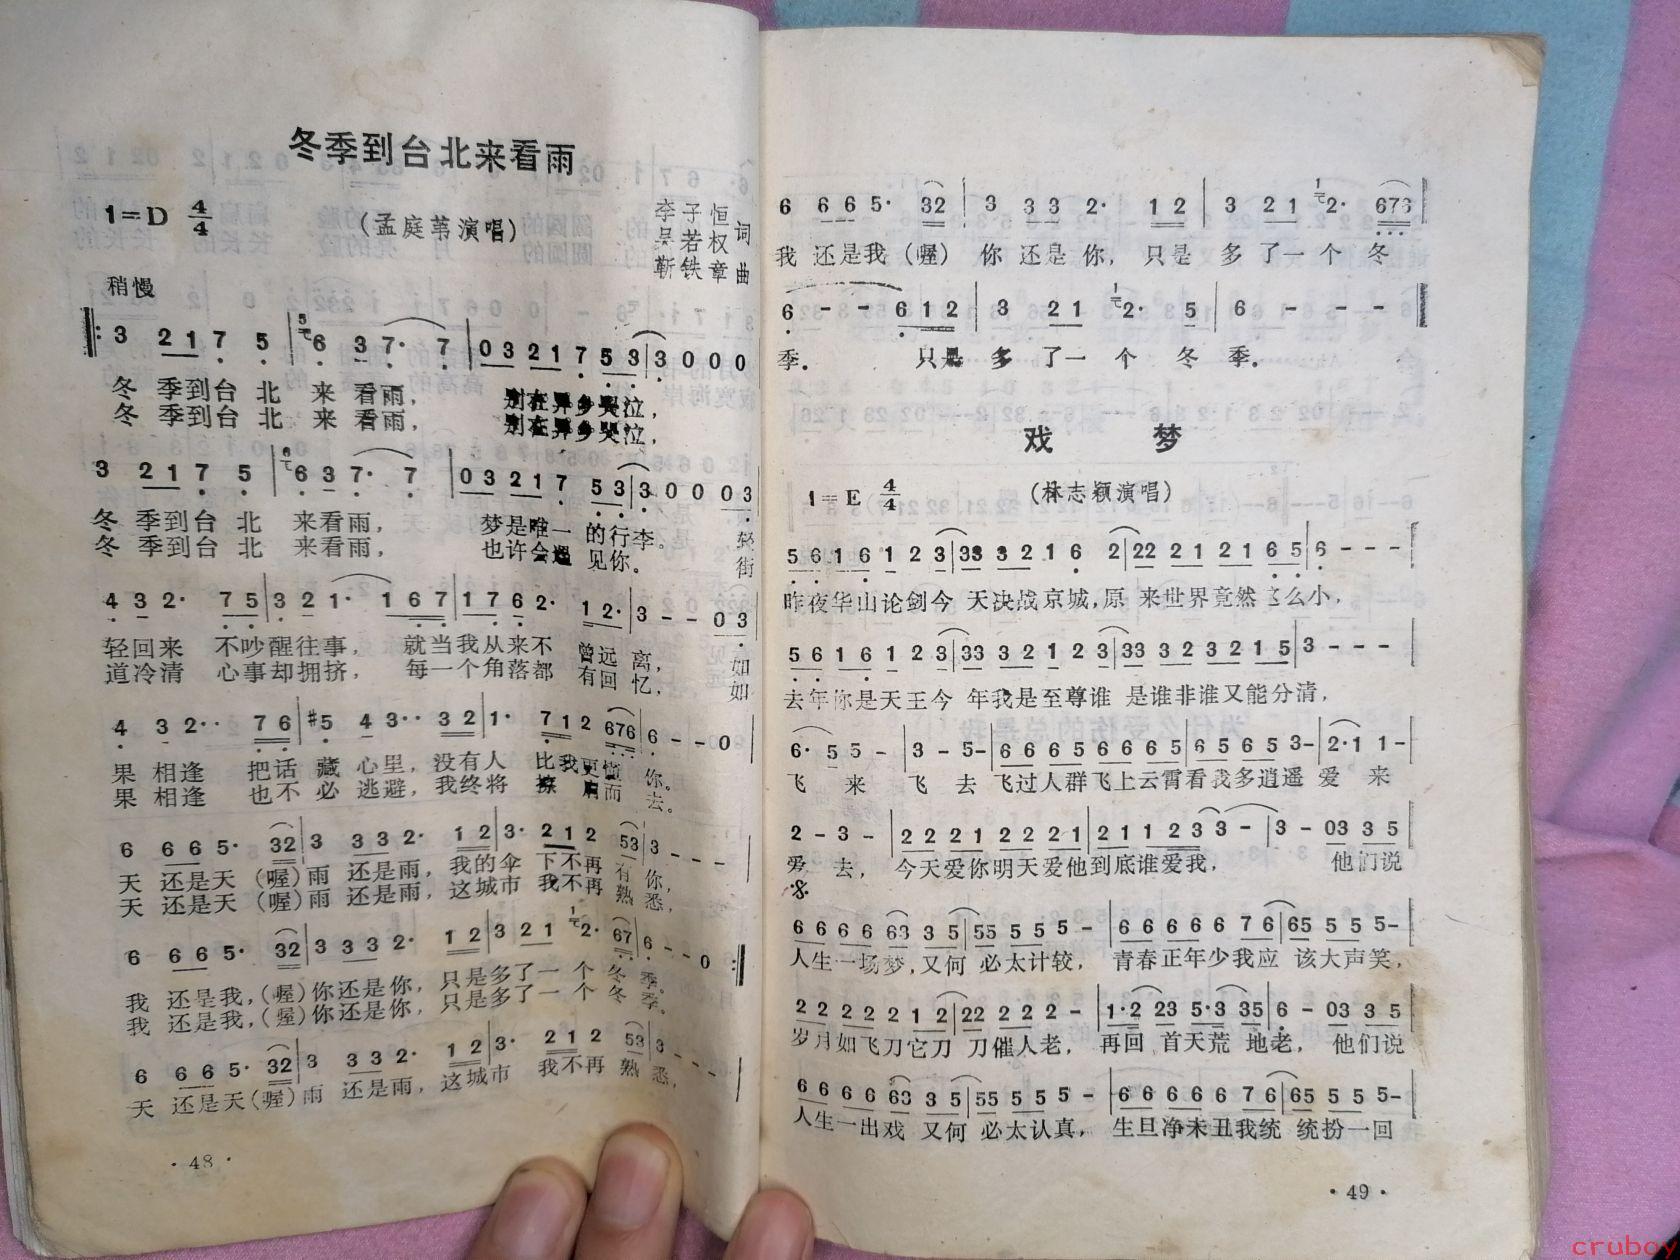 冬季到台北来看雨
1=D 4/4 (孟庭苇演唱) 李子恒 吴若权 词
靳铁章 曲
稍慢
3 2 1 7 5 | 6 3 7· 7 | 0 3 2 1 7 5 3 | 3 0 0 0
冬 季到台 北 来 看雨, 别在异乡哭泣,
冬 季到台 北 来 看雨, 别在异乡哭泣,
3 2 1 7 5 | 6 3 7· 7 | 0 3 2 1 7 5 3 | 3 0 0 0 3
冬 季到台 北 来看雨, 梦是唯一 的行李。 轻
冬 季到台 北 来看雨, 也许会遇 见你. 街
4 3 2· 7 5 | 3 2 1· 1 6 7 | 1 7 6 2· 1 2· | 3 - - 0 3
轻回来 不吵醒往事, 就当我从来不 曾远离, 如
道冷清 心事却拥挤, 每一个角落都 有回忆, 如
4 3 2·· 7 6 | #5 4 3·· 3 2 | 1· 7 1 2 676 | 6 - - 0
果 相逢 把话 藏 心里, 没有人 比我更懂 你。
果 相逢 也不 必 逃避, 我终将 擦肩而 去。
6 6 6 5· 32 | 3 3 3 2· 1 2 | 3· 2 1 2 53 | 3 - - -
天 还是天 (喔) 雨 还是雨, 我的伞 下不再 有 你,
天 还是天 (喔) 雨 还是雨, 这城市 我不再 熟 悉,
6 6 6 5· 32 | 3 3 3 2· 1 2 | 3 2 1 2· 67 | 6 - - 0
我 还是我,(喔)你还是你, 只是多了一 个 冬 季。
我 还是我,(喔)你还是你, 只是多了一 个 冬 季。
6 6 6 5· 32 | 3 3 3 2· 1 2 | 3· 2 1 2 53 | 3 - - -
天 还是天(喔)雨 还是雨, 这城市 我不再 熟 悉,
·48·
6 6 6 5· 32 | 3 3 3 2· 1 2 | 3 2 1 2· 676
我 还是我 (喔) 你 还是你, 只是 多 了一 个 冬
6 - - 6 1 2 | 3 2 1 2· 5 | 6 - - -
季. 只是 多 了一 个 冬 季.
戏 梦
1=E 4/4 (林志颖演唱)
5 6 1 6 1 2 3 | 33 3 2 1 6 2 | 22 2 1 2 1 6 5 | 6 - - -
昨夜华山论剑今 天决战京城,原 来世界竟然这么小,
5 6 1 6 1 2 3 | 33 3 2 1 2 3 | 33 3 2 3 2 1 5 | 3 - - -
去年你是天王今 年我是至尊谁 是谁非谁又能分清,
6· 5 5 - | 3 - 5 - | 6 6 6 5 6 6 6 5 | 6 5 6 5 3 - | 2·1 1 -
飞 来 飞 去 飞过人群飞上云霄看我多逍遥 爱 来
2 - 3 - | 2 2 2 1 2 2 2 1 | 2 1 1 2 3 3 - | 3 - 03 3 5
爱 去, 今天爱你明天爱他到底谁爱我, 他们说
6 6 6 6 63 3 5 | 55 5 5 5 - | 6 6 6 6 6 7 6 | 65 5 5 5 -
人生一场梦,又何 必太计较, 青春正年少我应 该大声笑,
2 2 2 2 2 1 2 | 22 2 2 2 - | 1·2 23 5·3 35 | 6 - 03 3 5
岁月如飞刀它刀 刀催人老, 再回 首天荒 地老, 他们说
6 6 6 6 63 3 5 | 55 5 5 5 - | 6 6 6 6 6 7 6 | 65 5 5 5 -
人生一出戏 又何 必太认真, 生旦净末丑我统 统扮一回
·49·
cruboy